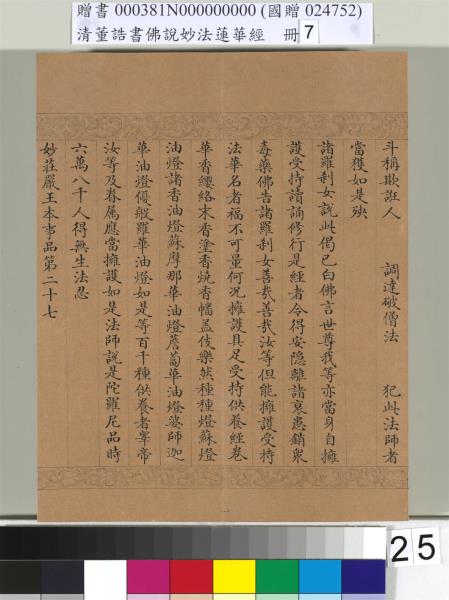 贈書 000381N000000000 (國贈 024752)
清董誥書佛說妙法蓮華經 冊 7
斗稱欺誑人 調達破僧法 犯此法師者
當獲如是殃
諸羅剎女說此偈已白佛言世尊我等亦當身自擁
護受持讀誦修行是經者令得安隱離諸衰患銷眾
毒藥佛告諸羅剎女善哉善哉汝等但能擁護受持
法華名者福不可量何況擁護具足受持供養經卷
華香纓絡末香塗香燒香幡蓋伎樂然種種燈蘇燈
油燈諸香油燈蘇摩那華油燈薝蔔華油燈婆師迦
華油燈優鉢羅華油燈如是等百千種供養者睪帝
汝等及眷屬應當擁護如是法師說是陀羅尼品時
六萬八千人得無生法忍
妙莊嚴王本事品第二十七
25